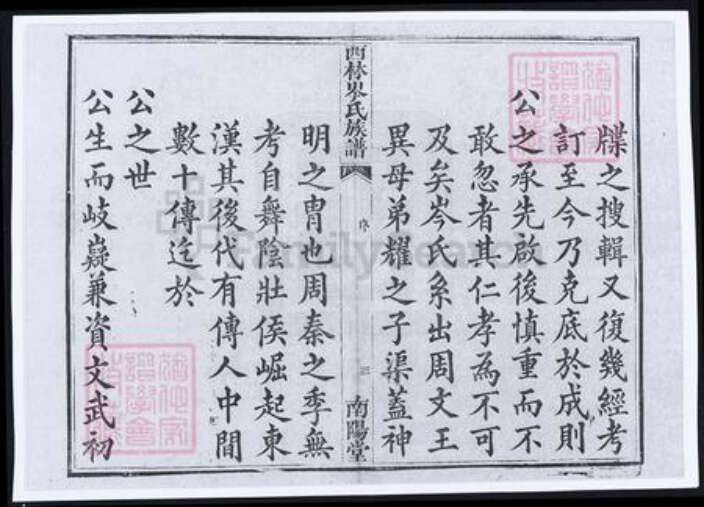 牒之搜輯又復幾經考
訂至今乃克底於成則
公之承先啟後慎重而不
敢忽者其仁孝為不可
及矣岑氏系出周文王
異母弟耀之子渠蓋神
西林岑氏族譜
序
三
南陽堂
明之冑也周秦之季無
考自舞陰壯侯崛起東
漢其後代有傳人中間
數十傳迄於
公之世
公生而岐嶷兼資文武初
FamilySearch